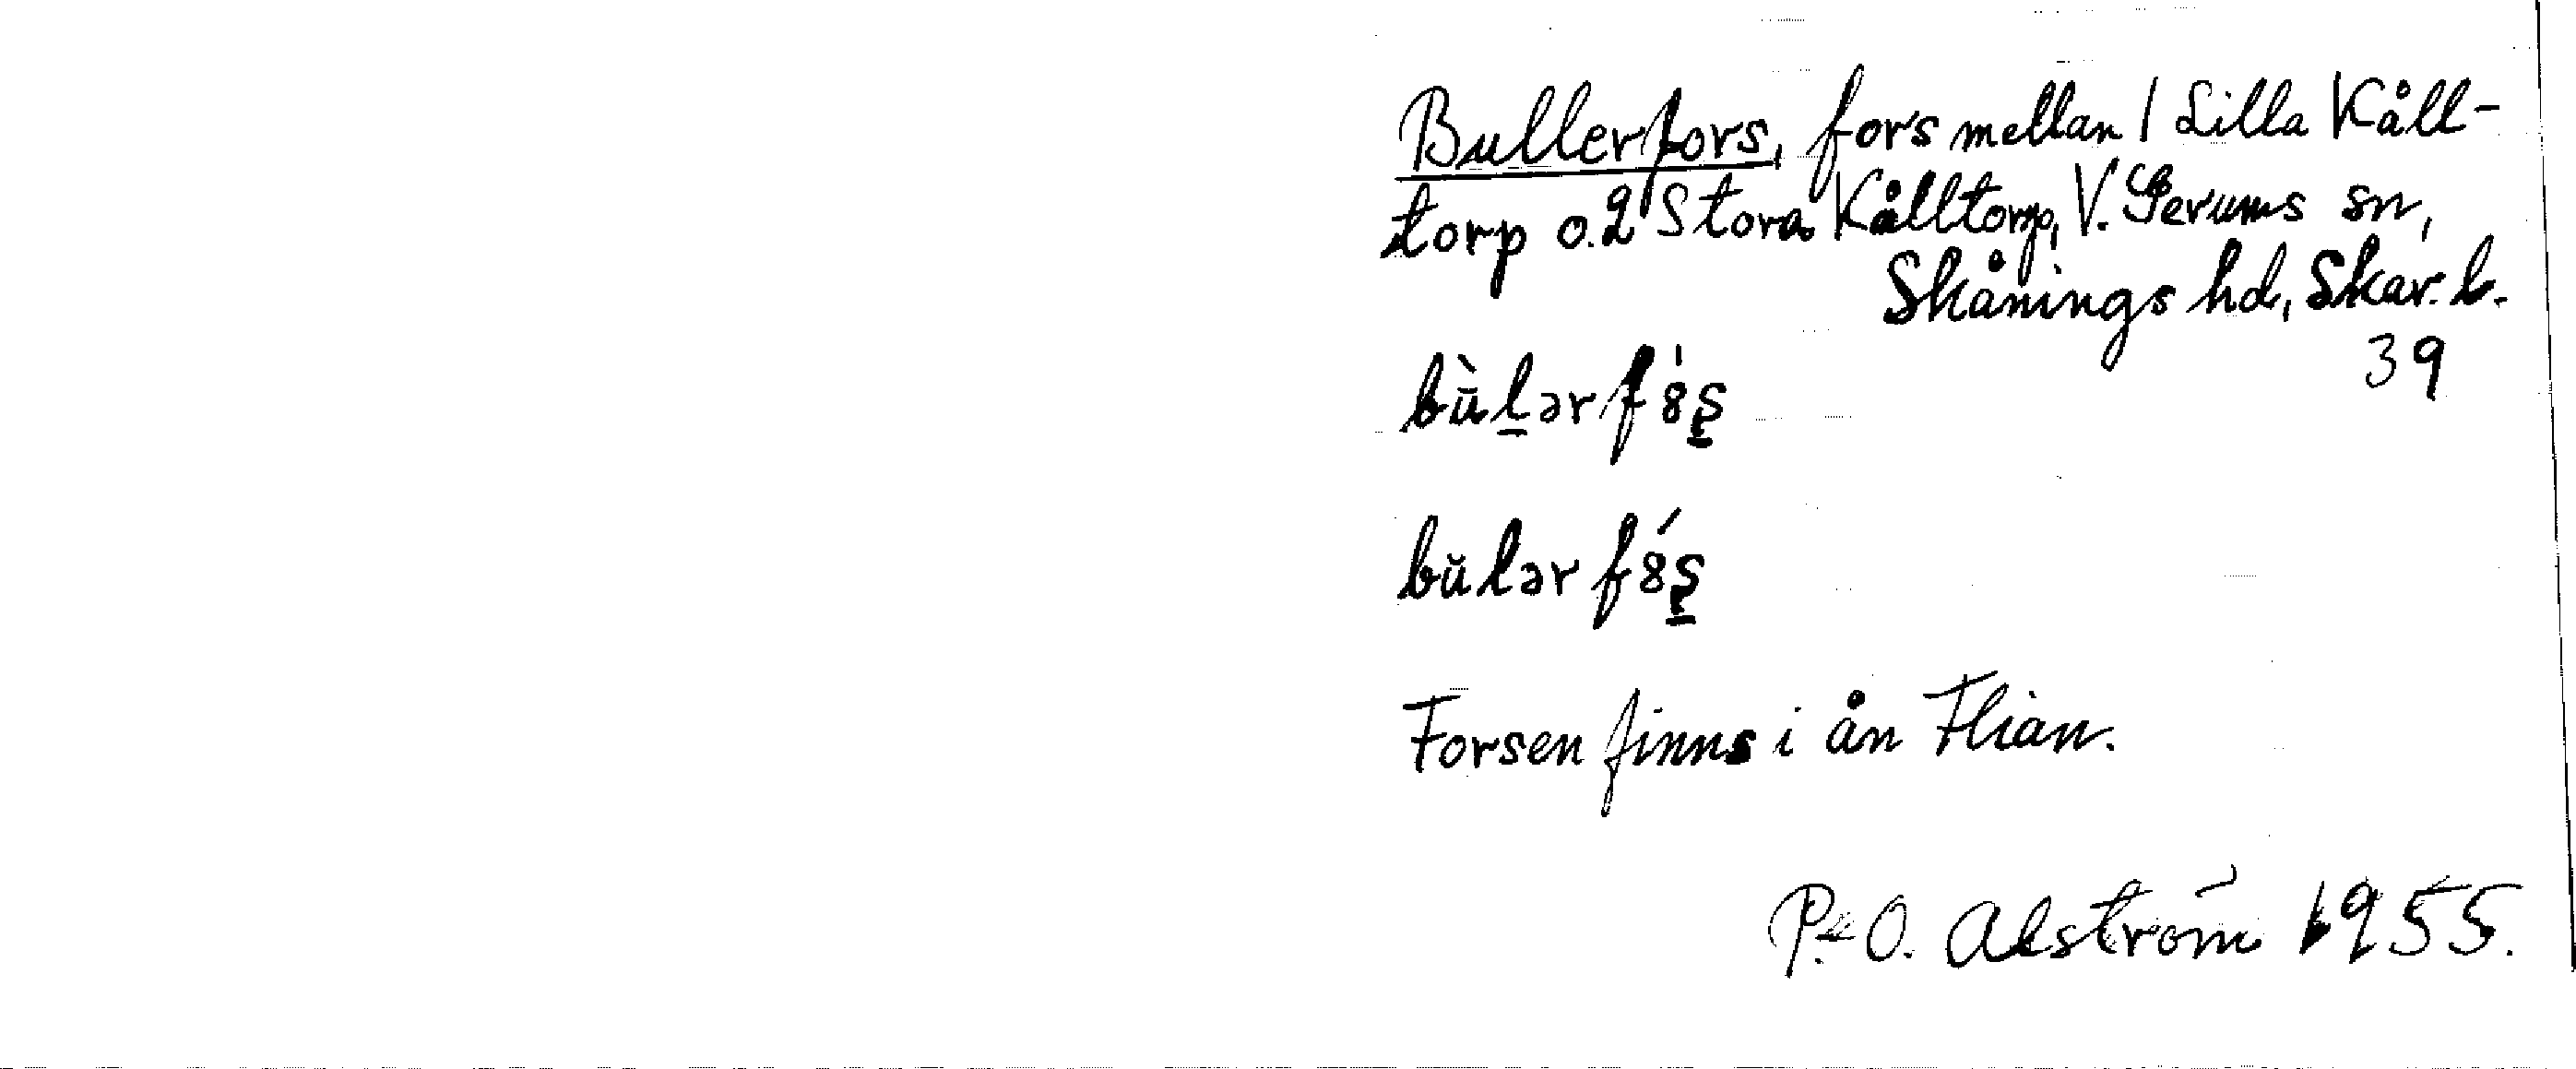 Bullerfors, fors mellan 1 Lilla Kåll-
torp o. 2 Stora Kålltorp, V. Gerums sn,
Skånings hd, Skar. l.
39
bū̀l̠ərf8̍s̠
bŭlərf8́s̠
Forsen finns i ån Flian.
P.-O. Alström 1955.